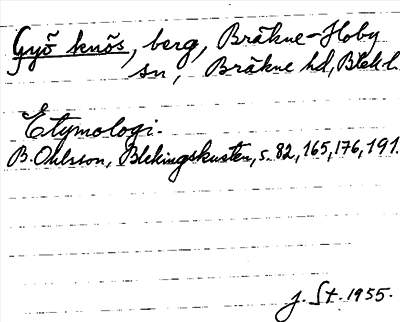 Gyö knös, berg, Bräkne-Hoby
sn, Bräkne hd, Blek.l.
Etymologi.
B. Ohlsson, Blekingskusten, s. 82, 165, 176, 191.
J. St. 1955.